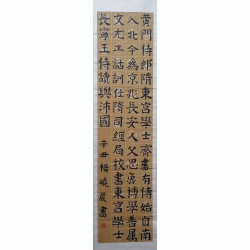 黃門侍郎隋東宮學士齊書有傳始自南
入北今為京兆長安人父思魯博學善屬
文尤工詁訓仕隋司經局校書東宮學士
長寧王侍讀與沛國
辛丑楊曉晨書